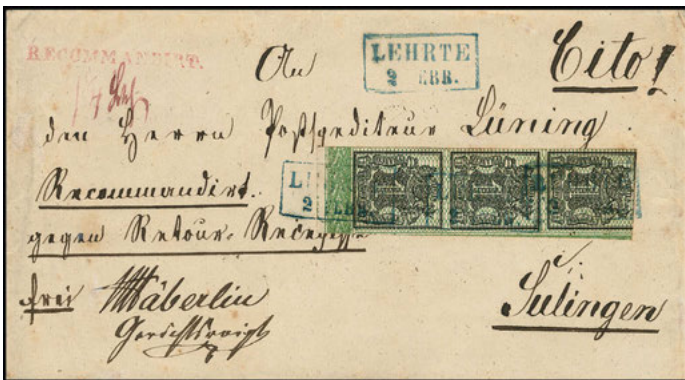 RECOMMANDIRT.
LEHRTE
2 EBR.
Cito!
An
den Herrn Postspediteur Lüning
Recommandirt.
gegen Retour-Recepisse
frei
Häberlin
Gerichtsvoigt
Sulingen